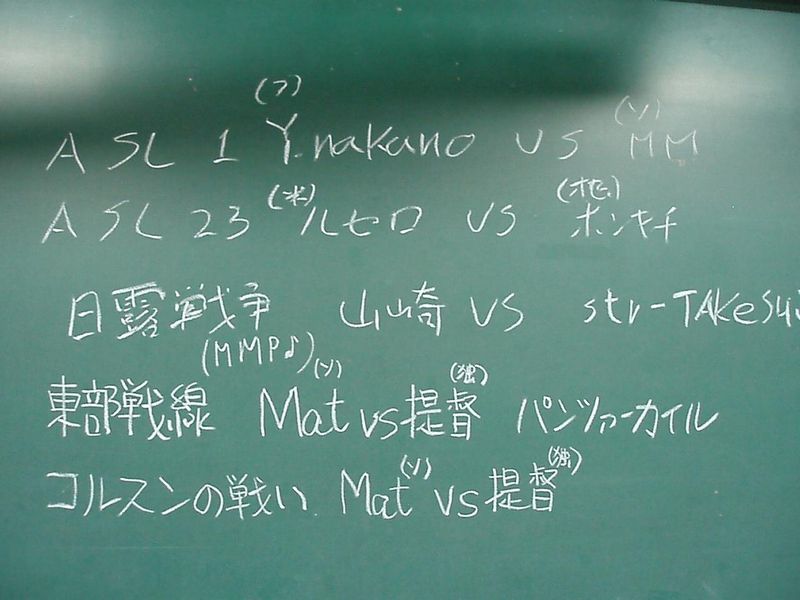 ASL 1 (フ)Y.nakano VS (ソ)MM
ASL 23 (米)ルセロ VS ホンキチ
日露戦争 山崎 VS str-TAKeSui
(MMP♪)
東部戦線 (ソ)Mat vs (独)提督 パンツァーカイル
コルスンの戦い Mat(ソ) vs 提督(独)